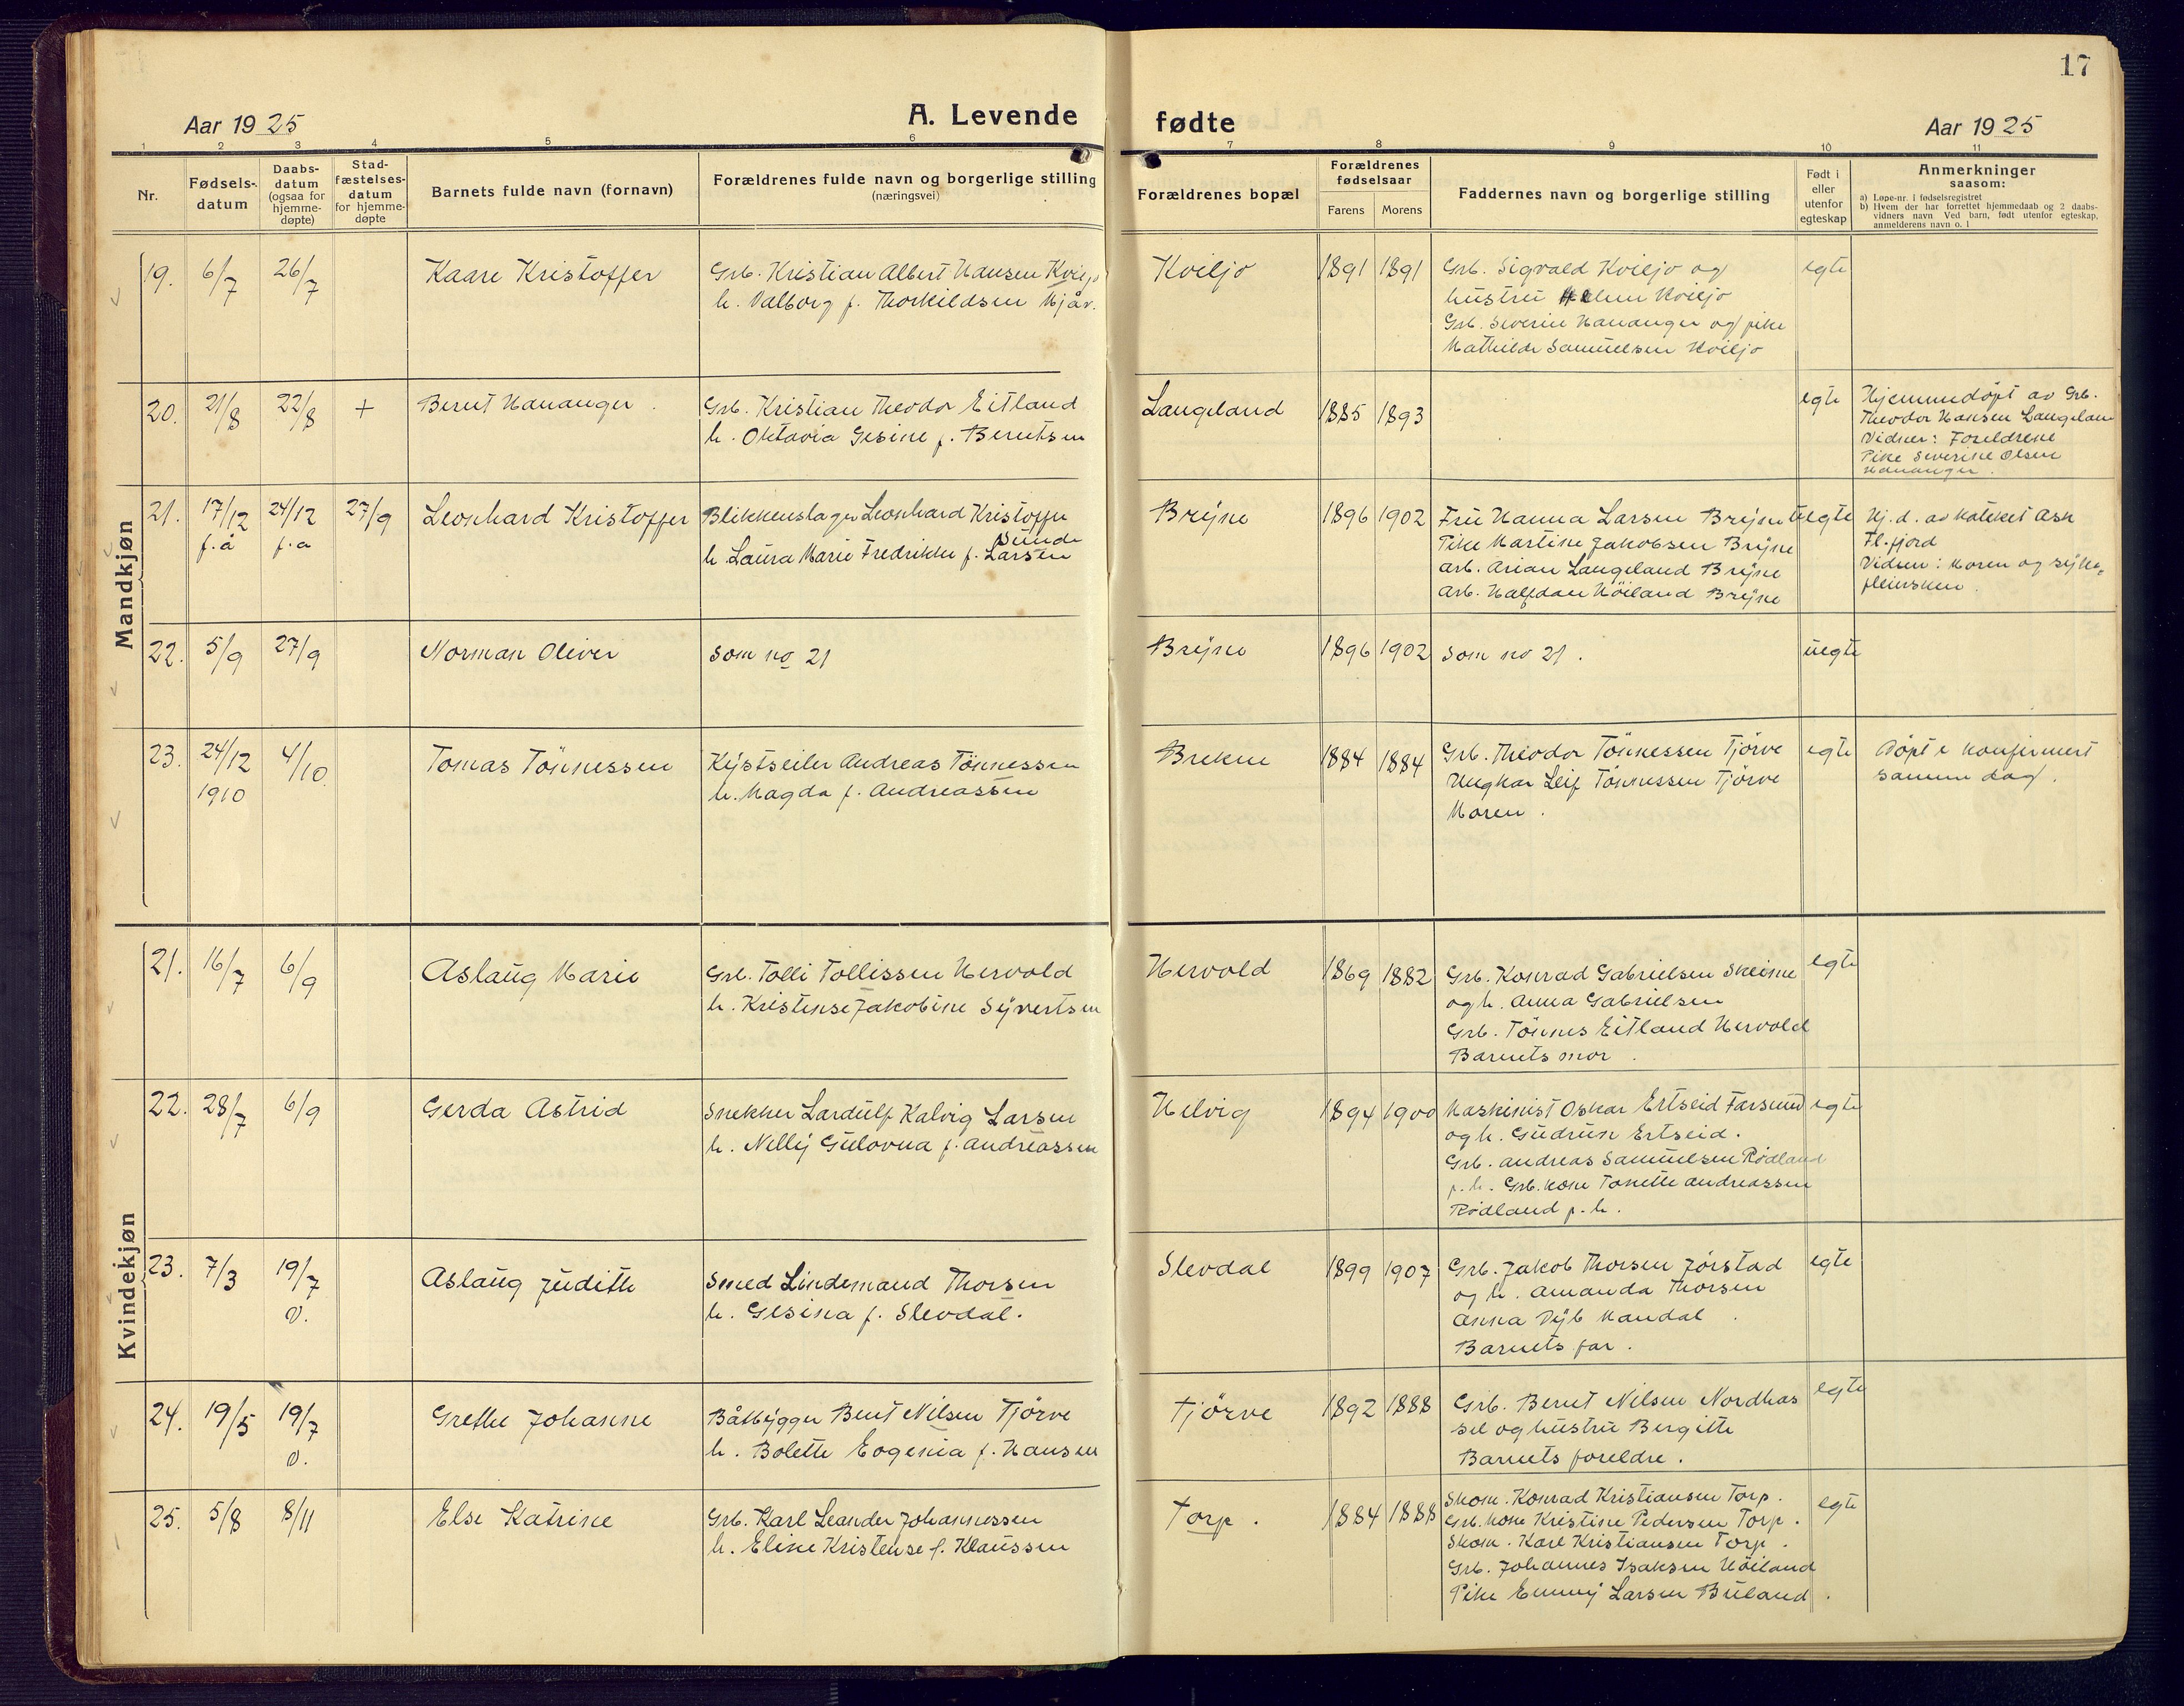 17
Aar 1925
A. Levende
fødte
Aar 1925
1 2 3 4 5 6 7 8 9 10 11
Nr.
Fødsels-
datum
Daabs-
datum
(ogsaa for
hjemme-
døpte)
Stad-
fæstelses-
datum
for hjemme-
døpte
Barnets fulde navn (fornavn)
Forældrenes fulde navn og borgerlige stilling
(næringsvei)
Forældrenes bopæl
Forældrenes
fødselsaar
Farens Morens
Faddernes navn og borgerlige stilling
Født i
eller
utenfor
egteskap
Anmerkninger
saasom:
a) Løpe-nr. i fødselsregistret
b) Hvem der har forrettet hjemmedaab og 2 daabs-
vidners navn Ved barn, født utenfor egteskap,
anmelderens navn o. l
Mandkjøn
19. 6/7 26/7 Kaare Kristoffer
Grb. Kristian Albert Hansen Kviljo
h. Valborg f. Thorkildsen Mjåv.
Kviljo 1891 1891
Grb. Sigvald Kviljo og
hustru Helene Kviljo
Grb. Severin Hananger og pike
Mathilde Samuelsen Kviljo
egte
20. 21/8 22/8 + Bernt Hananger.
Grb. Kristian Theodor Eitland
h. Oktavia Gesine f. Berntsen
Langeland 1885 1893
egte
Hjemmedøpt av Grb.
Theodor Hansen Langeland
Vidner: Foreldrene
Pike Severine Olsen
Hananger.
21. 17/12 24/12 27/9 Leonhard Kristoffer
f. å f. a
Blikkenslager Leonhard Kristoffer
Sunde
h. Laura Marie Fredrikke f. Larsen
Bryne 1896 1902
Fru Hanna Larsen Bryne
Pike Martine Jakobsen Bryne
Arb. Arian Langeland Bryne
Arb. Halfdan Höiland Bryne
uegte
Hj. d. av Kateket Ask
Fl. fjord
Vidner: Moren og syke-
pleiersken.
22. 5/9 27/9 Norman Oliver
Som no 21
Bryne 1896 1902
Som no 21.
uegte
23. 24/12 4/10 Tomas Tönnessen
1910
Kystseiler Andreas Tönnessen
h. Magda f. Andreassen
Brekne 1884 1884
Grb. Theodor Tönnessen Tjörve
Ungkar Leif Tönnessen Tjörve
Moren.
egte
Döpt & konfirmert
samme dag.
Kvindekjøn
21. 16/7 6/9 Aslaug Marie
Grb. Tolli Tollissen Hervold
h. Kristense Jakobine Syvertsen
Hervold 1869 1882
Grb. Konrad Gabrielsen Skeime
og h. Anna Gabrielsen
Grb. Tönnes Eitland Hervold
Barnets mor.
egte
22. 28/7 6/9 Gerda Astrid
Snekker Lardulf Kalvig Larsen
h. Nelly Gulovna f. Andreassen
Helvig 1894 1900
Maskinist Oskar Ertseid Farsund
og h. Gudrun Ertseid.
Grb. Andreas Samuelsen Rödland
p. h. Grb. kone Tonette Andreassen
Rödland p. h.
egte
23. 7/3 19/7 Aslaug Judith
V.
Smed Lindemand Thorsen
h. Gesina f. Slevdal.
Slevdal 1899 1907
Grb. Jakob Thorsen Jörstad
og h. Amanda Thorsen
Anna Dyb Mandal.
Barnets far.
egte
24. 19/5 19/7 Grethe Johanne
V.
Båtbygger Bent Nilsen Tjörve
h. Bolette Eogenia f. Hansen
Tjörve 1892 1888
Grb. Bernt Nilsen Nordhas
sel og hustru Bergitte
Barnets foreldre.
egte
25. 5/8 8/11 Else Katrine
Grb. Karl Leander Johannessen
h. Eline Kristense f. Klaussen
Torp. 1884 1888
Skom. Konrad Kristiansen Torp.
Grb. kone Kristine Pedersen Torp.
Skom. Karl Kristiansen Torp.
Grb. Johannes Isaksen Höiland
Pike Emmy Larsen Buland.
egte